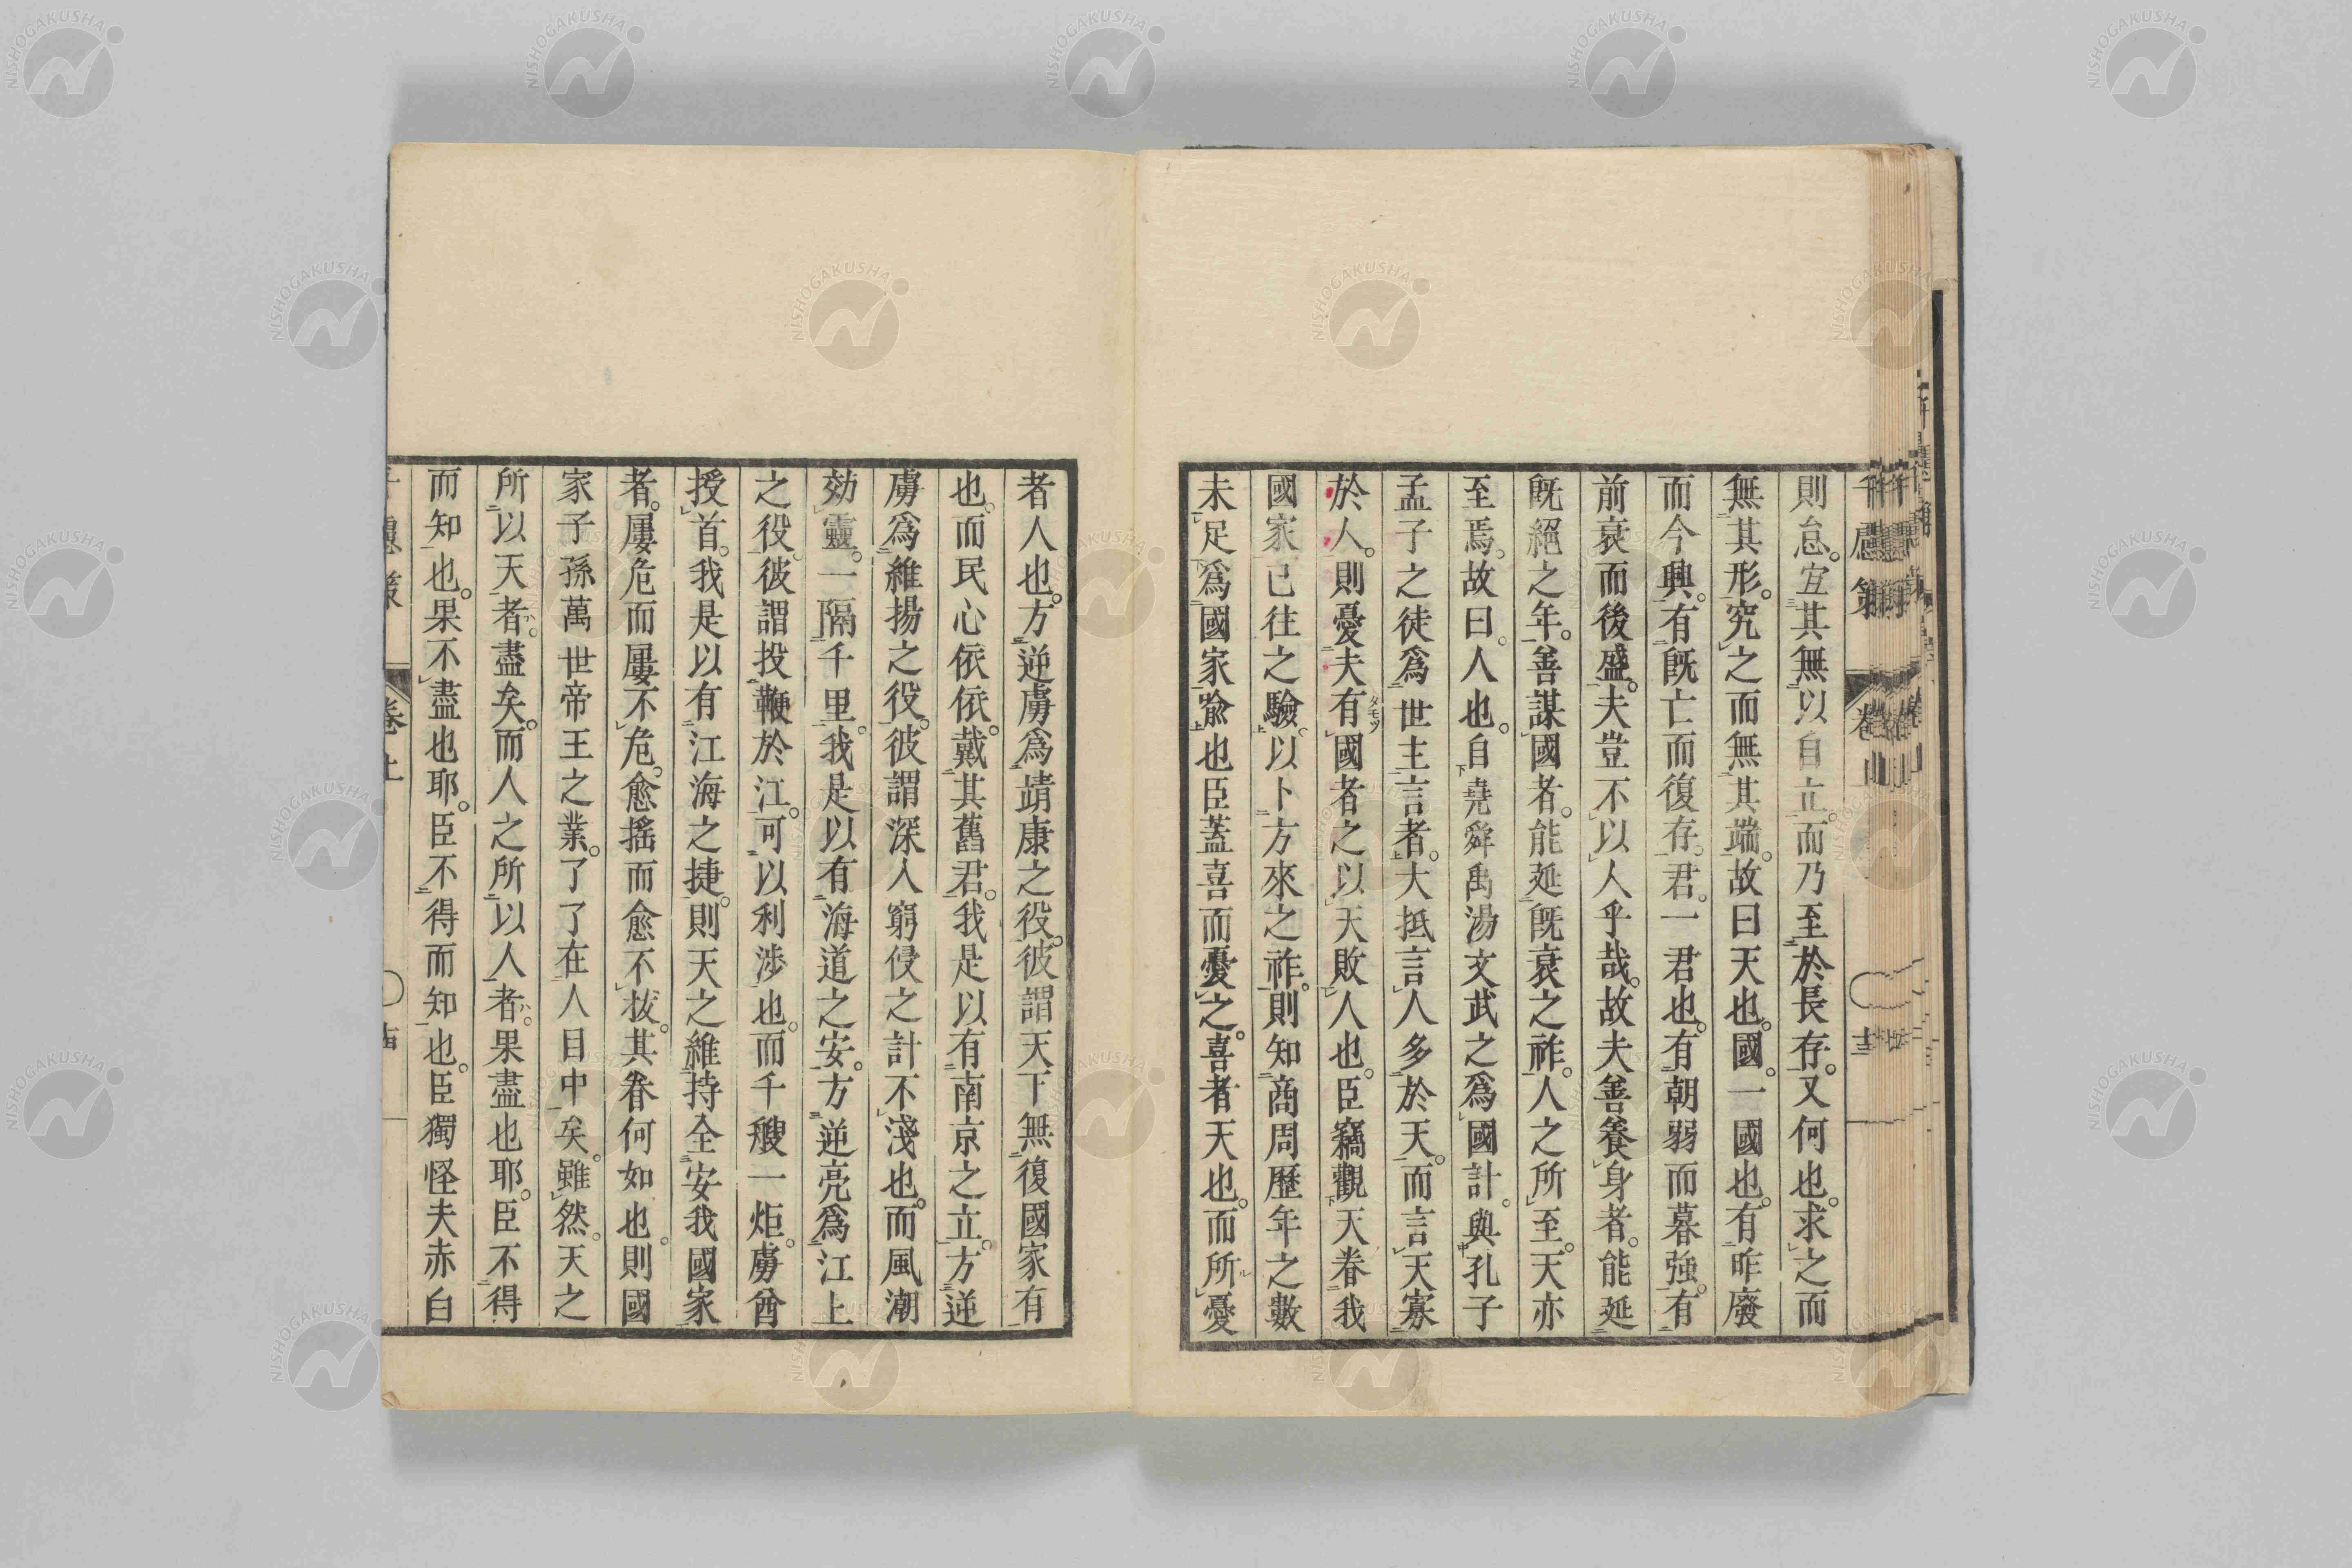 則怠。宜其無以自立。而乃至於長存。又何也。求之而
無其形。究之而無其端。故曰天也。國。一國也。有昨廢
而今興。有旣亡而復存。君。一君也。有朝弱而暮強。有
前衰而後盛。夫豈不以人乎哉。故夫善養身者。能延
旣絕之年。善謀國者。能延旣衰之祚。人之所至。天亦
至焉。故曰。人也。自堯舜禹湯文武之爲國計。與孔子
孟子之徒爲世主言者。大抵言人多於天。而言天寡
於人。則憂夫有國者之以天敗人也。臣竊觀天眷我
國家已往之驗。以卜方來之祚。則知商周歷年之數
未足爲國家喩也臣蓋喜而憂之。喜者天也。而所憂
者人也。方逆虜爲靖康之役。彼謂天下無復國家有
也。而民心依依。戴其舊君。我是以有南京之立。方逆
虜爲維揚之役。彼謂深入窮侵之計不淺也。而風潮
効靈。一隔千里。我是以有海道之安。方逆亮爲江上
之役。彼謂投鞭於江。可以利涉也。而千艘一炬。虜酋
授首。我是以有江海之捷。則天之維持全安我國家
者。屢危而屢不危。愈搖而愈不拔。其眷何如也。則國
家子孫萬世帝王之業。了了在人目中矣。雖然。天之
所以天者。盡矣。而人之所以人者。果盡也耶。臣不得
而知也。果不盡也耶。臣不得而知也。臣獨怪夫赤白
卷上
NISHOGAKUSHA